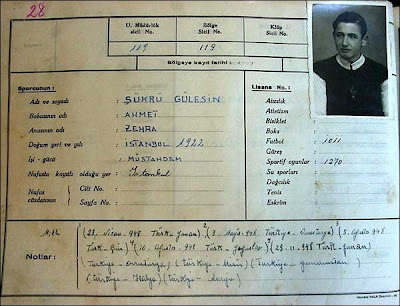 28
U. Müdürlük sicil No.
Bölge Sicil No.
Klüp Sicil No.
119
119
Bölgeye kayıt tarihi
Sporcunun :
Lisans No. :
Adı ve soyadı : ŞÜKRÜ GÜLESİN
Babasının adı : AHMET
Anasının adı : ZEHRA
Doğum yeri ve yılı : İSTANBUL 1922
İşi - gücü : MÜSTAHDEM
Nufusta kayıtlı olduğu yer : İstanbul
Nufus cüzdanının
Cilt No. :
Sayfa No. :
Atıcılık
Atletizm
Bisiklet
Boks
Futbol : 1011
Güreş
Sportif oyunlar : 1270
Su sporları
Dağcılık
Tenis
Eskrim
Notlar :
(23. Nisan. 948 Türk-Yunan) (2. Mayıs. 948 Türkiye-Avusturya) (5. Ağustos 948
Türk-Çin) (10. Ağusto. 948. Türk-Yugoslav) (28-11-948 Türk-Yunan)
(Türkiye- (Türkiye-Mısır) (Türkiye-
(Türkiye-İtalya) (Türkiye-